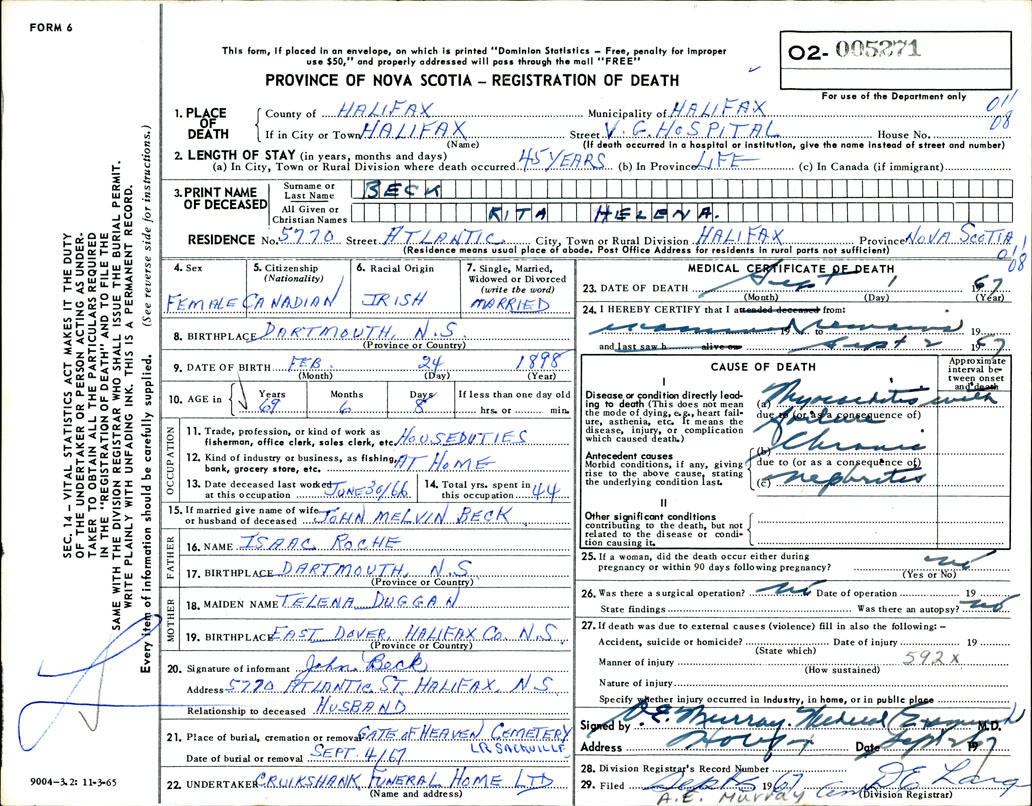 FORM 6
This form, if placed in an envelope, on which is printed "Dominion Statistics – Free, penalty for improper
use $50," and properly addressed will pass through the mail "FREE"
O2- 005271
For use of the Department only
PROVINCE OF NOVA SCOTIA – REGISTRATION OF DEATH
011
08
1. PLACE OF DEATH
County of HALIFAX Municipality of HALIFAX
If in City or Town HALIFAX Street V.G. HOSPITAL House No.
(Name) (If death occurred in a hospital or institution, give the name instead of street and number)
2. LENGTH OF STAY (in years, months and days)
(a) In City, Town or Rural Division where death occurred 45 YEARS (b) In Province LIFE (c) In Canada (if immigrant)
3. PRINT NAME OF DECEASED
Surname or Last Name BECK
All Given or Christian Names RITA HELENA.
RESIDENCE No. 5770 Street ATLANTIC City, Town or Rural Division HALIFAX Province NOVA SCOTIA
(Residence means usual place of abode. Post Office Address for residents in rural parts not sufficient)
011
08
4. Sex
FEMALE
5. Citizenship
(Nationality)
CANADIAN
6. Racial Origin
IRISH
7. Single, Married,
Widowed or Divorced
(write the word)
MARRIED
8. BIRTHPLACE DARTMOUTH, N.S.
(Province or Country)
9. DATE OF BIRTH FEB. 24 1898
(Month) (Day) (Year)
10. AGE in
Years Months Days If less than one day old
69 6 8 hrs. or min.
OCCUPATION
11. Trade, profession, or kind of work as
fisherman, office clerk, sales clerk, etc. HOUSEDUTIES
12. Kind of industry or business, as fishing,
bank, grocery store, etc. AT HOME
13. Date deceased last worked
at this occupation JUNE 30/66
14. Total yrs. spent in
this occupation 44
15. If married give name of wife
or husband of deceased JOHN MELVIN BECK
FATHER
16. NAME ISAAC ROCHE
17. BIRTHPLACE DARTMOUTH, N.S.
(Province or Country)
MOTHER
18. MAIDEN NAME TELENA DUGGAN
19. BIRTHPLACE EAST DOVER, HALIFAX CO. N.S.
(Province or Country)
20. Signature of informant John Beck
Address 5770 ATLANTIC ST. HALIFAX, N.S
Relationship to deceased HUSBAND
21. Place of burial, cremation or removal GATE OF HEAVEN CEMETERY
LR SACKVILLE
Date of burial or removal SEPT. 4/67
22. UNDERTAKER CRUIKSHANK FUNERAL HOME LTD
(Name and address)
MEDICAL CERTIFICATE OF DEATH
23. DATE OF DEATH Sept 1 67
(Month) (Day) (Year)
24. I HEREBY CERTIFY that I attended deceased from:
remains 19
and last saw h alive on Sept 2 1967
CAUSE OF DEATH
Approximate
interval be-
tween onset
and death
I
Disease or condition directly lead-
ing to death (This does not mean
the mode of dying, e.g., heart fail-
ure, asthenia, etc. It means the
disease, injury, or complication
which caused death.)
(a) Myocarditis with
due to (or as a consequence of)
failure
Antecedent causes
Morbid conditions, if any, giving
rise to the above cause, stating
the underlying condition last.
(b) Chronic
due to (or as a consequence of)
(c) nephritis
II
Other significant conditions
contributing to the death, but not
related to the disease or condi-
tion causing it.
25. If a woman, did the death occur either during
pregnancy or within 90 days following pregnancy? no
(Yes or No)
26. Was there a surgical operation? no Date of operation 19
State findings Was there an autopsy? no
27. If death was due to external causes (violence) fill in also the following: –
Accident, suicide or homicide? Date of injury 19
(State which)
Manner of injury 592x
(How sustained)
Nature of injury
Specify whether injury occurred in industry, in home, or in public place
Signed by A.E. Murray. Medical Examiner M.D.
Address Date Sept 2 1967
28. Division Registrar's Record Number
29. Filed Sept 1967
(Division Registrar)
A.E. Murray
SEC. 14 – VITAL STATISTICS ACT MAKES IT THE DUTY
OF THE UNDERTAKER OR PERSON ACTING AS UNDER-
TAKER TO OBTAIN ALL THE PARTICULARS REQUIRED
IN THE "REGISTRATION OF DEATH" AND TO FILE THE
SAME WITH THE DIVISION REGISTRAR WHO SHALL ISSUE THE BURIAL PERMIT.
WRITE PLAINLY WITH UNFADING INK. THIS IS A PERMANENT RECORD.
Every item of information should be carefully supplied. (See reverse side for instructions.)
9004–3.2: 11-3-65